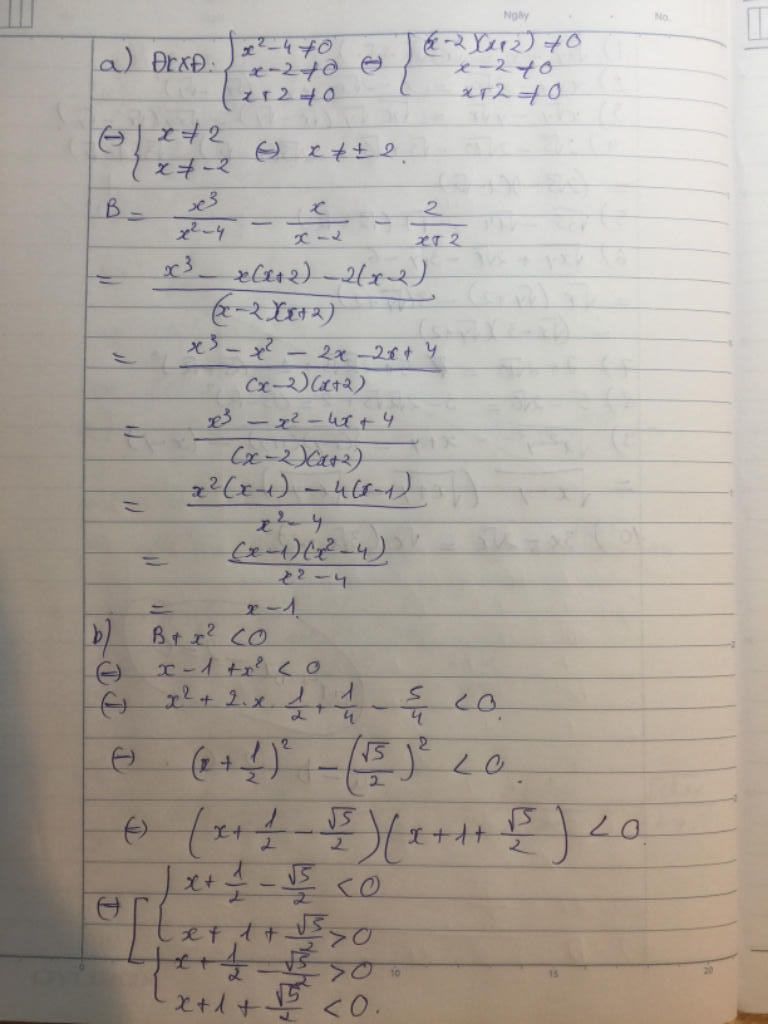 Ngày No.
a) ĐKXĐ: { x² - 4 ≠ 0 ; x - 2 ≠ 0 ; x + 2 ≠ 0 ⇔ { (x-2)(x+2) ≠ 0 ; x - 2 ≠ 0 ; x + 2 ≠ 0
⇔ { x ≠ 2 ; x ≠ -2 ⇔ x ≠ ± 2.
B = x³/(x² - 4) - x/(x - 2) - 2/(x + 2)
= (x³ - x(x+2) - 2(x-2))/((x-2)(x+2))
= (x³ - x² - 2x - 2x + 4)/((x-2)(x+2))
= (x³ - x² - 4x + 4)/((x-2)(x+2))
= (x²(x-1) - 4(x-1))/(x² - 4)
= ((x-1)(x² - 4))/(x² - 4)
= x - 1.
b) B + x² < 0
⇔ x - 1 + x² < 0
⇔ x² + 2.x.1/2 + 1/4 - 5/4 < 0.
⇔ (x + 1/2)² - (√5/2)² < 0.
⇔ (x + 1/2 - √5/2)(x + 1 + √5/2) < 0.
⇔ [ { x + 1/2 - √5/2 < 0
x + 1 + √5/2 > 0
{ x + 1/2 - √5/2 > 0
x + 1 + √5/2 < 0.
10 15 20